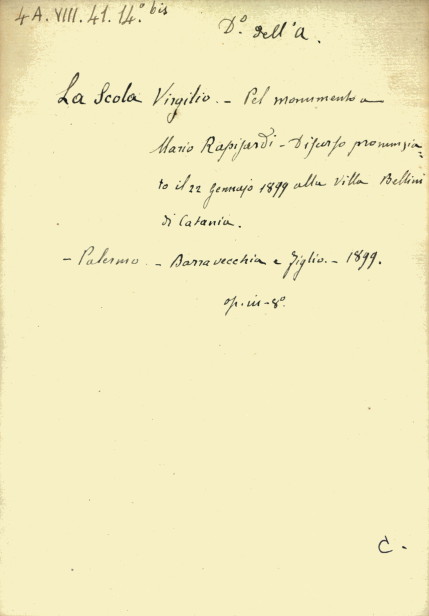 4 A. VIII. 41. 14.° bis
D.° dell'A.
La Scola Virgilio. - Pel monumento a
Mario Rapisardi - Discorso pronunzia=
to il 22 Gennajo 1899 alla Villa Bellini
di Catania.
- Palermo. - Barravecchia e Figlio. - 1899.
op. in-8°
C.